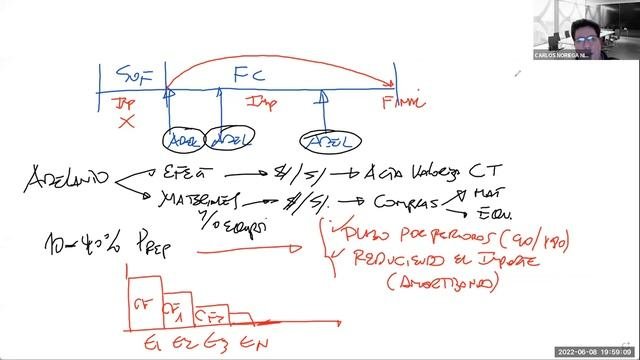 CARLOS NORIEGA NI...
FC
Imp Imp
X
ADEL ADEL ADEL
ADELANTO EFECT $/S/ ACTA Valoriza CT
MATERIALES $/S/. COMPRAS MAT
EQU.
10-40% PLAZO POR PERIODOS (90/180)
REDUCIENDO EL IMPORTE
(AMORTIZANDO)
CF CF1 CF2
E1 E2 E3 EN
2022-06-08 19:59:09